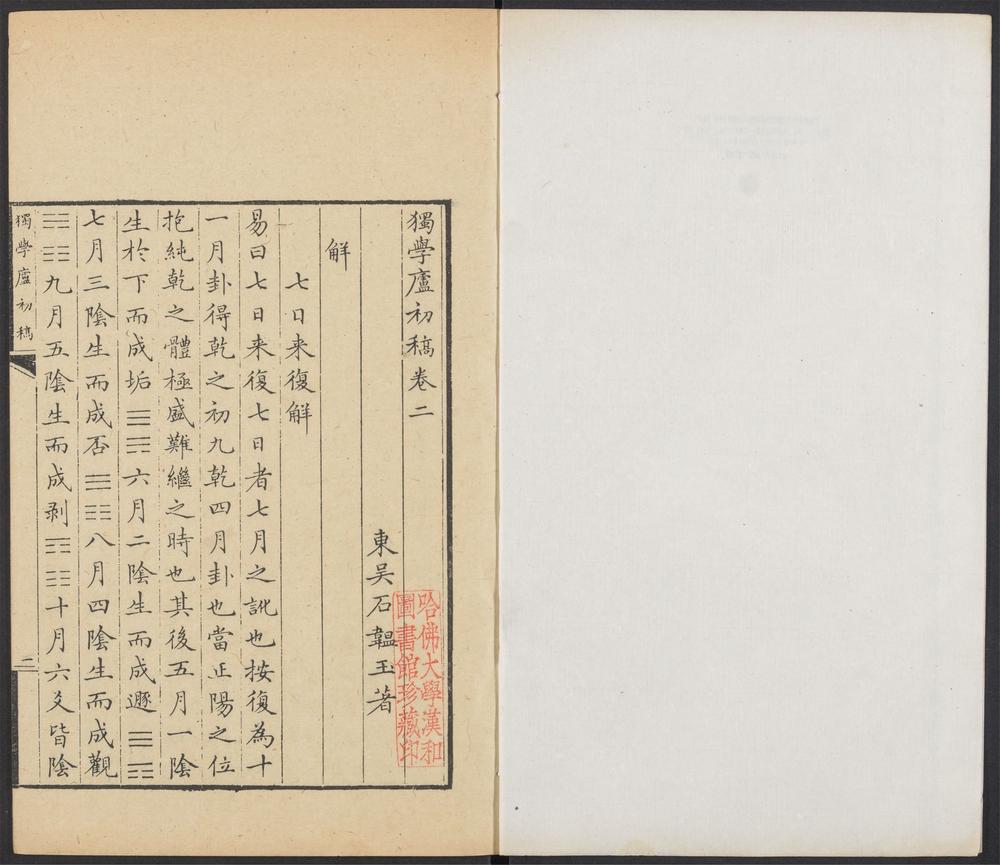 獨學廬初稿卷二
東吳石韞玉著
哈佛大學漢和
圖書館珍藏印
解
七日来復解
易曰七日来復七日者七月之訛也按復為十
一月卦得乾之初九乾四月卦也當正陽之位
抱純乾之體極盛難繼之時也其後五月一陰
生於下而成垢☰☴六月二陰生而成遯☰☶
七月三陰生而成否☰☷八月四陰生而成觀
☴☷九月五陰生而成剥☶☷十月六爻皆陰
獨學廬初稿
二